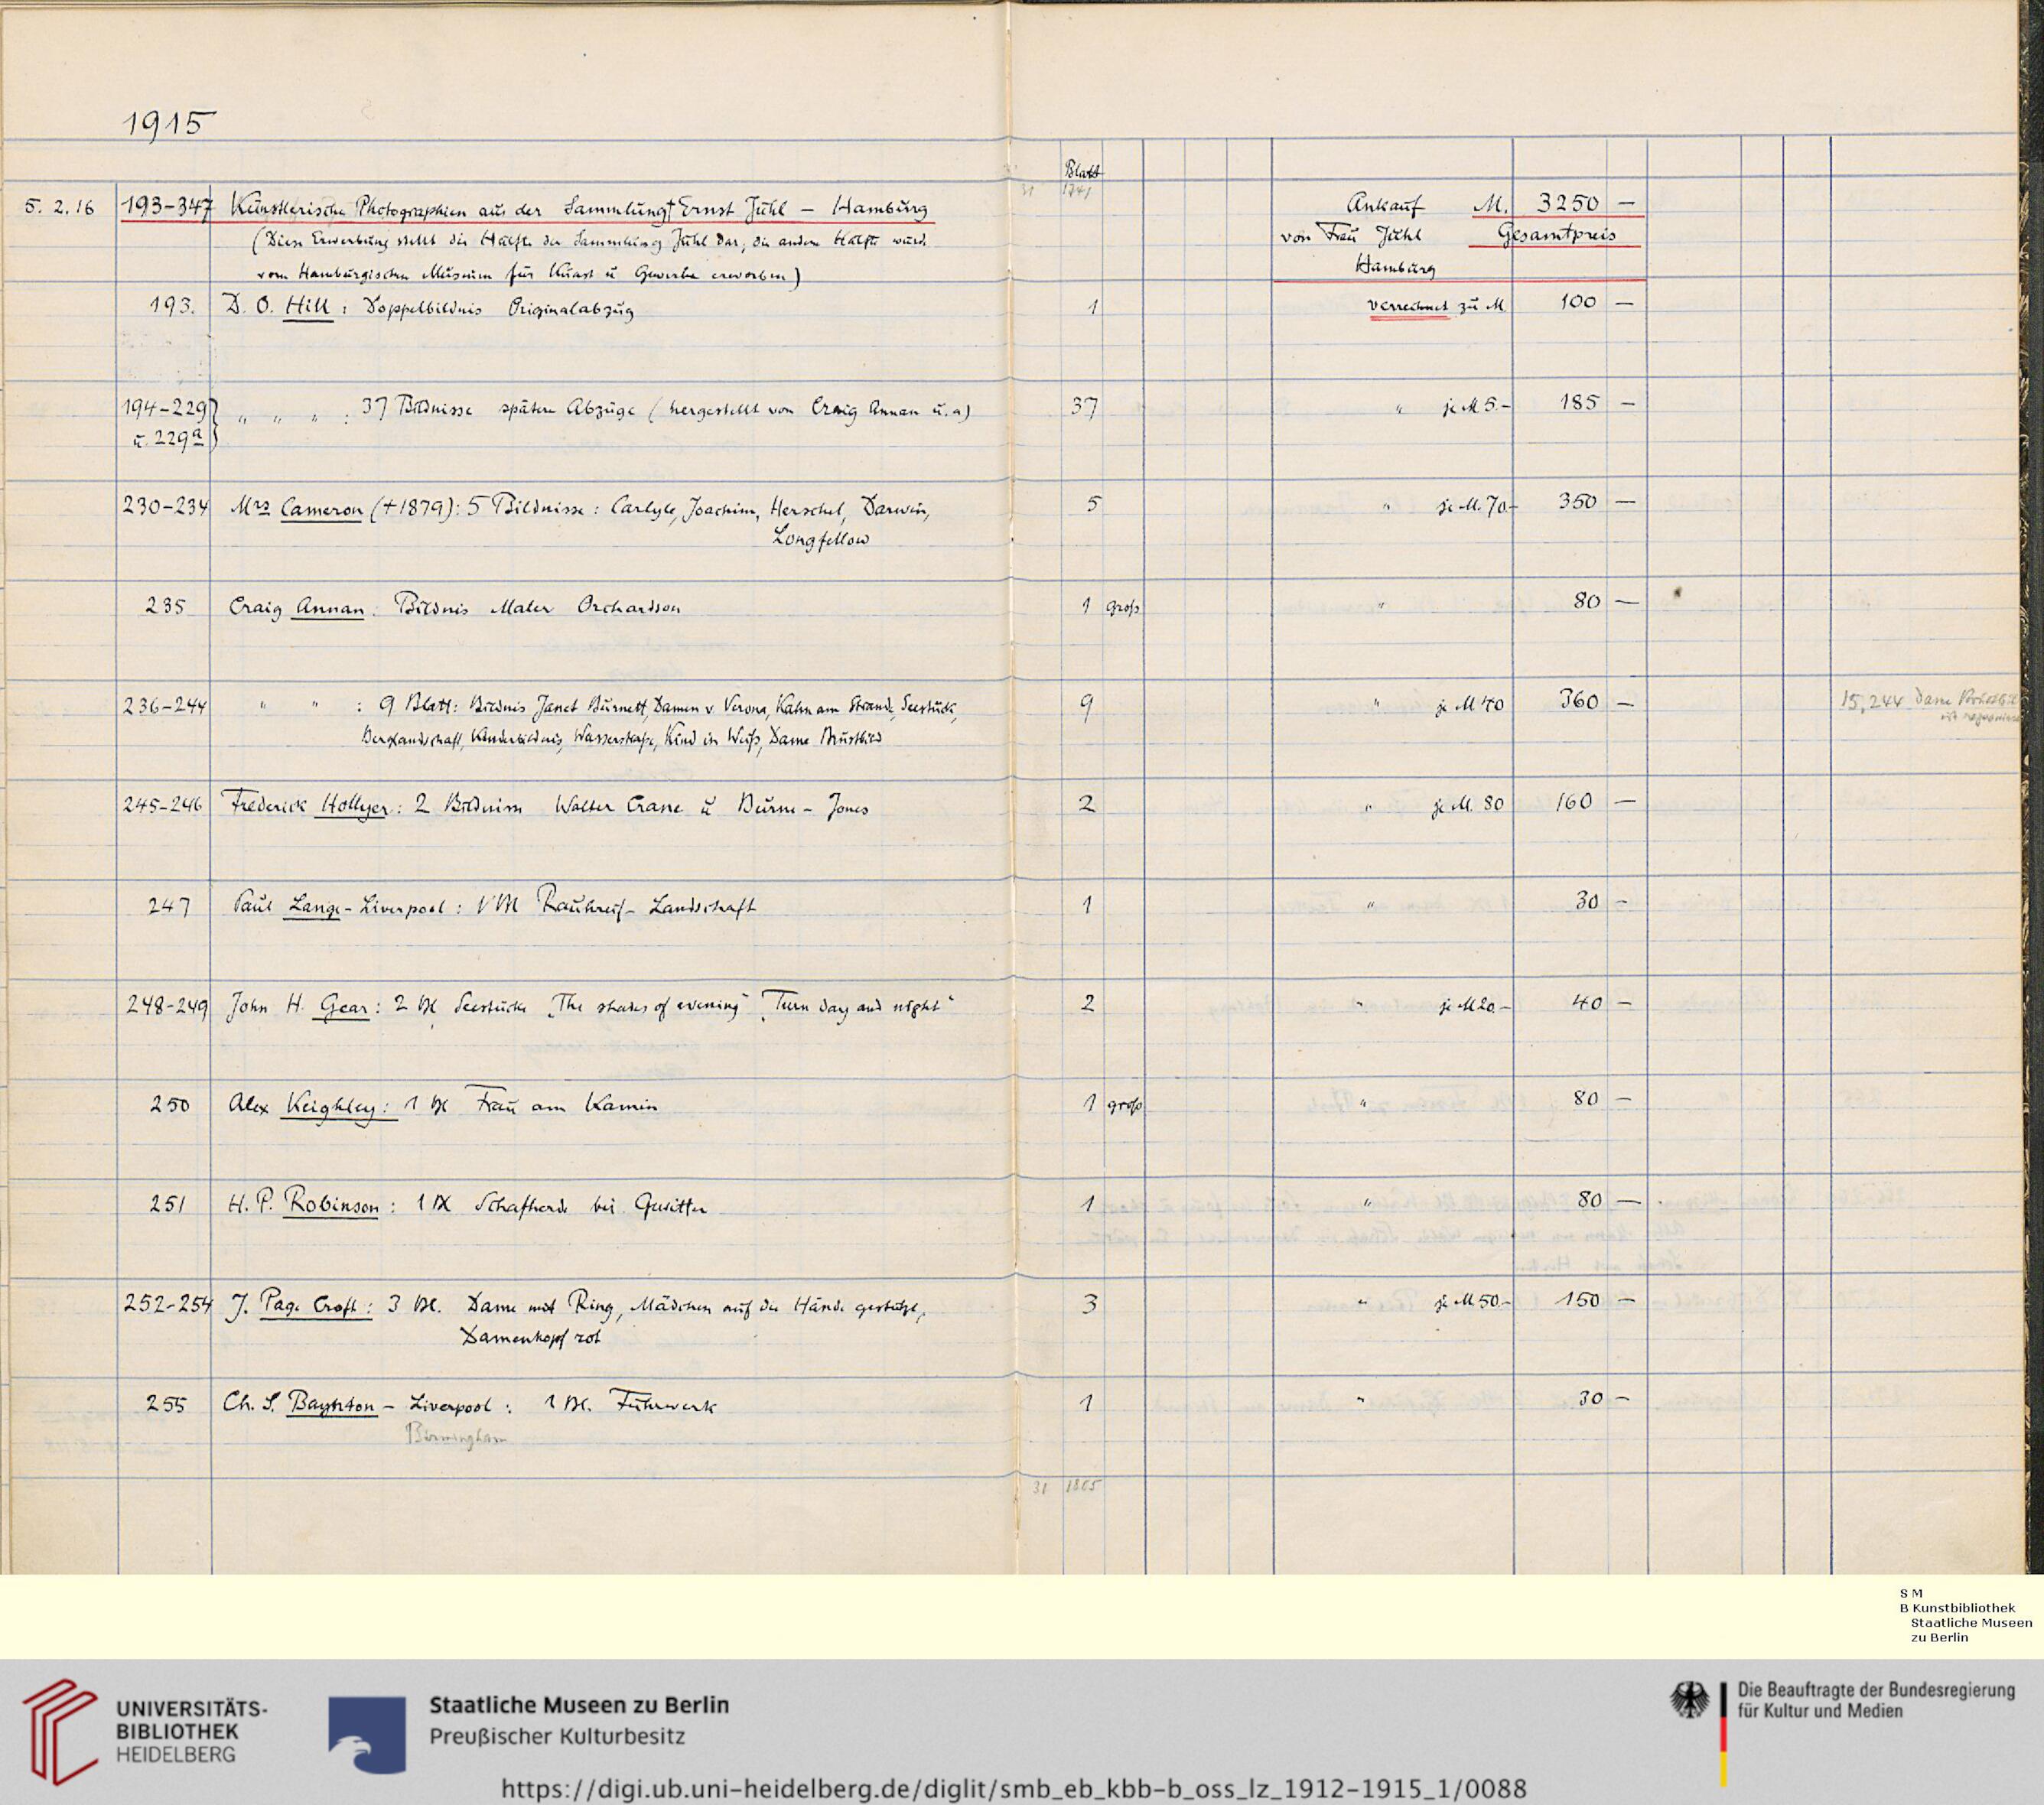 1915
Blatt
1741
5. 2. 16 193-347 Künstlerische Photographien aus der Sammlung † Ernst Juhl – Hamburg Ankauf M. 3250 —
(Diese Erwerbung stellt die Hälfte der Sammlung Juhl dar; die andere Hälfte wurde von Frau Juhl Gesamtpreis
vom Hamburgischen Museum für Kunst u Gewerbe erworben) Hamburg
193. D. O. Hill : Doppelbildnis Originalabzug 1 verrechnet zu M. 100 —
194-229 } " " " : 37 Bildnisse spätere Abzüge (hergestellt von Craig Annan u. a) 37 " je M 5.- 185 —
u. 229a
230-234 Mrs Cameron (†1879): 5 Bildnisse : Carlyle, Joachim, Herschel, Darwin, 5 " je M. 70.- 350 —
Longfellow
235 Craig Annan : Bildnis Maler Orchardson 1 groß " 80 —
236-244 " " : 9 Blatt: Bildnis Janet Burnett, Damen v. Verona, Kahn am Strande, Seestück, 9 " je M 40 360 — 15,244 Dame
Berglandschaft, Kinderbildnis, Wasserstraße, Kind in Weiß, Dame Brustbild
245-246 Frederick Hollyer : 2 Bildnisse Walter Crane u Burne - Jones 2 " je M. 80 160 —
247 Paul Lange - Liverpool : 1 Bl Rauhreif - Landschaft 1 " 30 -
248-249 John H. Gear : 2 Bl Seestücke „The shades of evening" „Turn day and night" 2 " je M 20.- 40 —
250 Alex Keighley : 1 Bl Frau am Kamin 1 groß " 80 —
251 H. P. Robinson : 1 Bl Schafherde bei Gewitter 1 " 80 —
252-254 J. Page Croft : 3 Bl. Dame mit Ring, Mädchen auf die Hände gestützt, 3 " je M 50.- 150 —
Damenkopf rot
255 Ch. S. Baynton - Liverpool : 1 Bl. Fuhrwerk 1 " 30 —
Birmingham
31 1805
S M
B Kunstbibliothek
Staatliche Museen
zu Berlin
UNIVERSITÄTS-
BIBLIOTHEK
HEIDELBERG
Staatliche Museen zu Berlin
Preußischer Kulturbesitz
Die Beauftragte der Bundesregierung
für Kultur und Medien
https://digi.ub.uni-heidelberg.de/diglit/smb_eb_kbb-b_oss_lz_1912-1915_1/0088